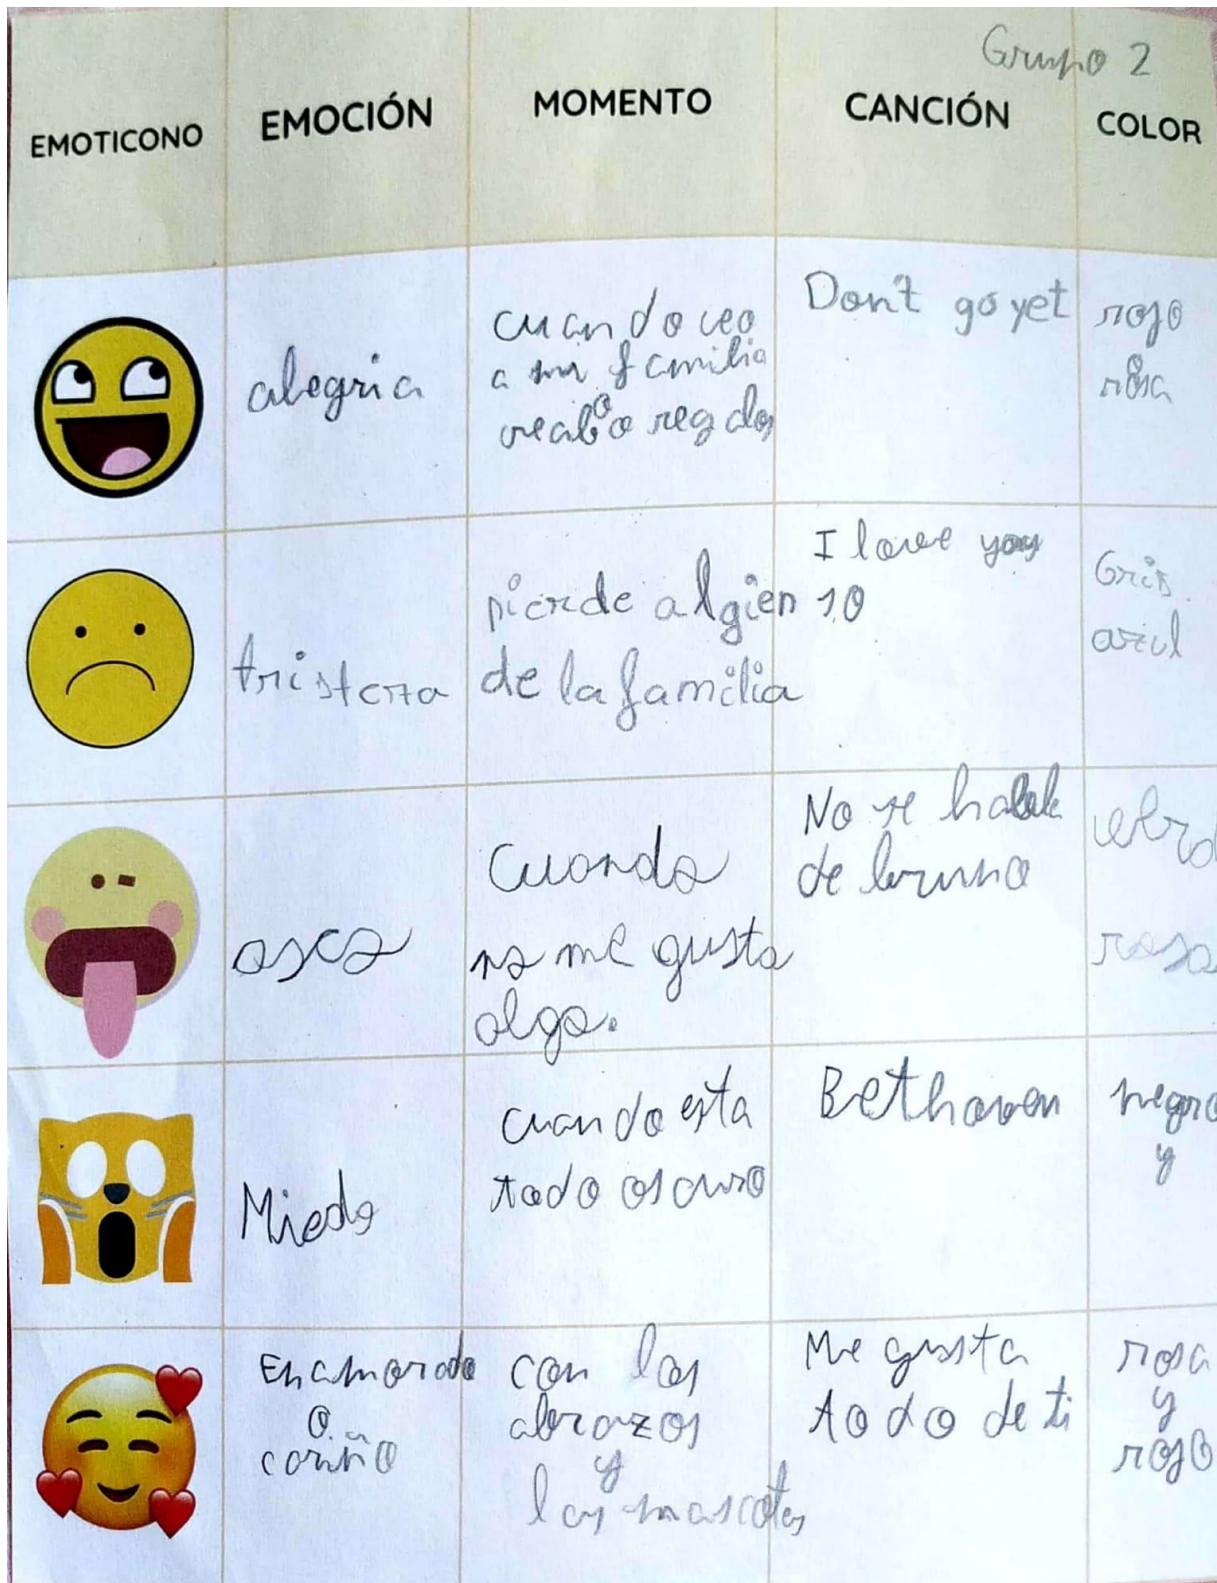 Grupo 2
EMOTICONO EMOCIÓN MOMENTO CANCIÓN COLOR
alegria
cuando veo
a mi familia
o
recibo regalos
Don't go yet
rojo
rosa
tristeza
pierde algien
de la familia
I love you
10
Gris.
azul
asco
Cuando
no me gusta
algo.
No se habla
de bruno
rosa
Miedo
cuando esta
todo oscuro
Bethoven
negro
y
Enamorado
o
cariño
con los
abrazos
y
las mascotas
Me gusta
todo de ti
rosa
y
rojo